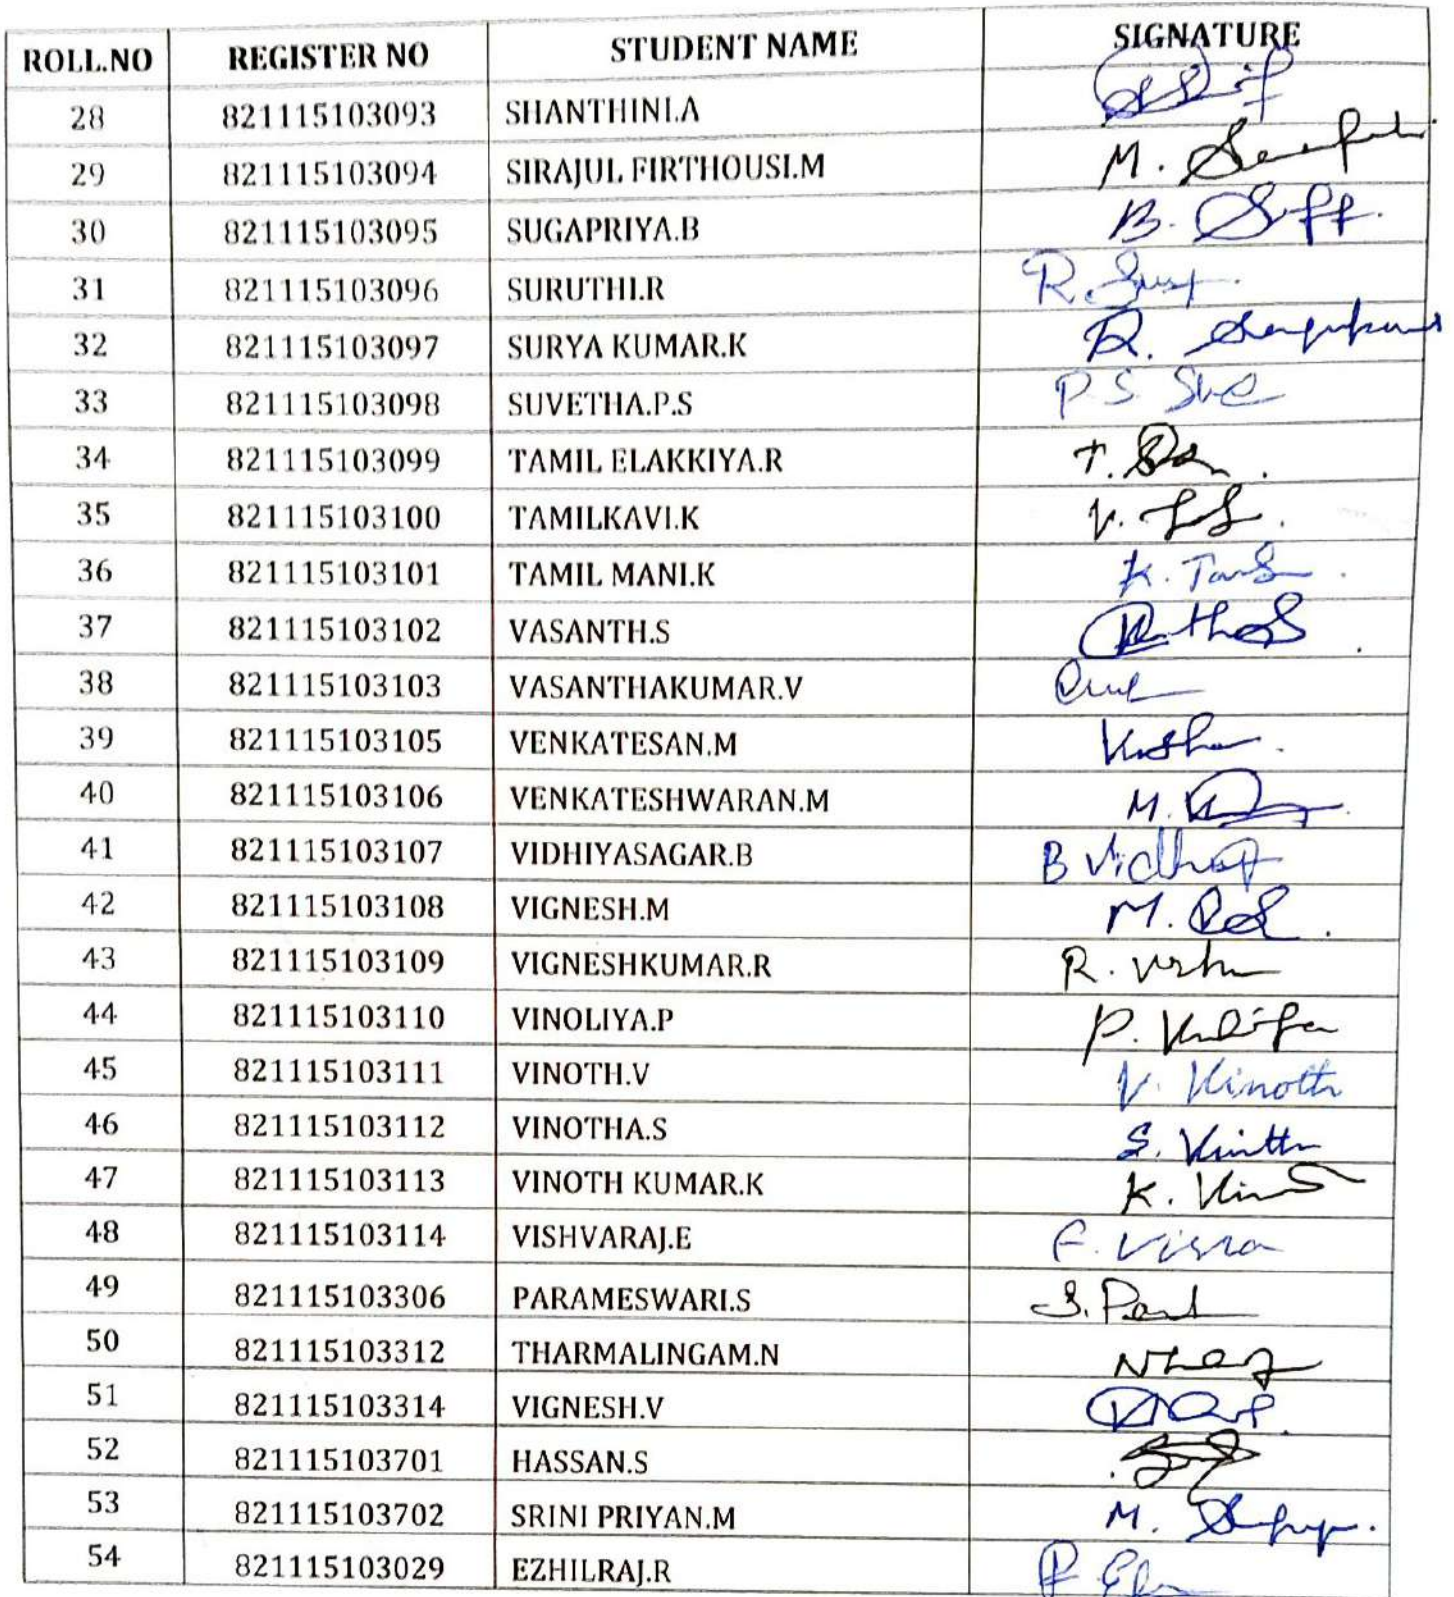 ROLL.NO REGISTER NO STUDENT NAME SIGNATURE
28 821115103093 SHANTHINI.A
29 821115103094 SIRAJUL FIRTHOUSI.M M.
30 821115103095 SUGAPRIYA.B B.
31 821115103096 SURUTHI.R R.
32 821115103097 SURYA KUMAR.K
33 821115103098 SUVETHA.P.S P.S
34 821115103099 TAMIL ELAKKIYA.R T.
35 821115103100 TAMILKAVI.K
36 821115103101 TAMIL MANI.K K.
37 821115103102 VASANTH.S
38 821115103103 VASANTHAKUMAR.V
39 821115103105 VENKATESAN.M
40 821115103106 VENKATESHWARAN.M M.
41 821115103107 VIDHIYASAGAR.B B
42 821115103108 VIGNESH.M M.
43 821115103109 VIGNESHKUMAR.R R.
44 821115103110 VINOLIYA.P P.
45 821115103111 VINOTH.V V. Vinoth
46 821115103112 VINOTHA.S S.
47 821115103113 VINOTH KUMAR.K K.
48 821115103114 VISHVARAJ.E
49 821115103306 PARAMESWARI.S S.
50 821115103312 THARMALINGAM.N
51 821115103314 VIGNESH.V
52 821115103701 HASSAN.S
53 821115103702 SRINI PRIYAN.M M.
54 821115103029 EZHILRAJ.R